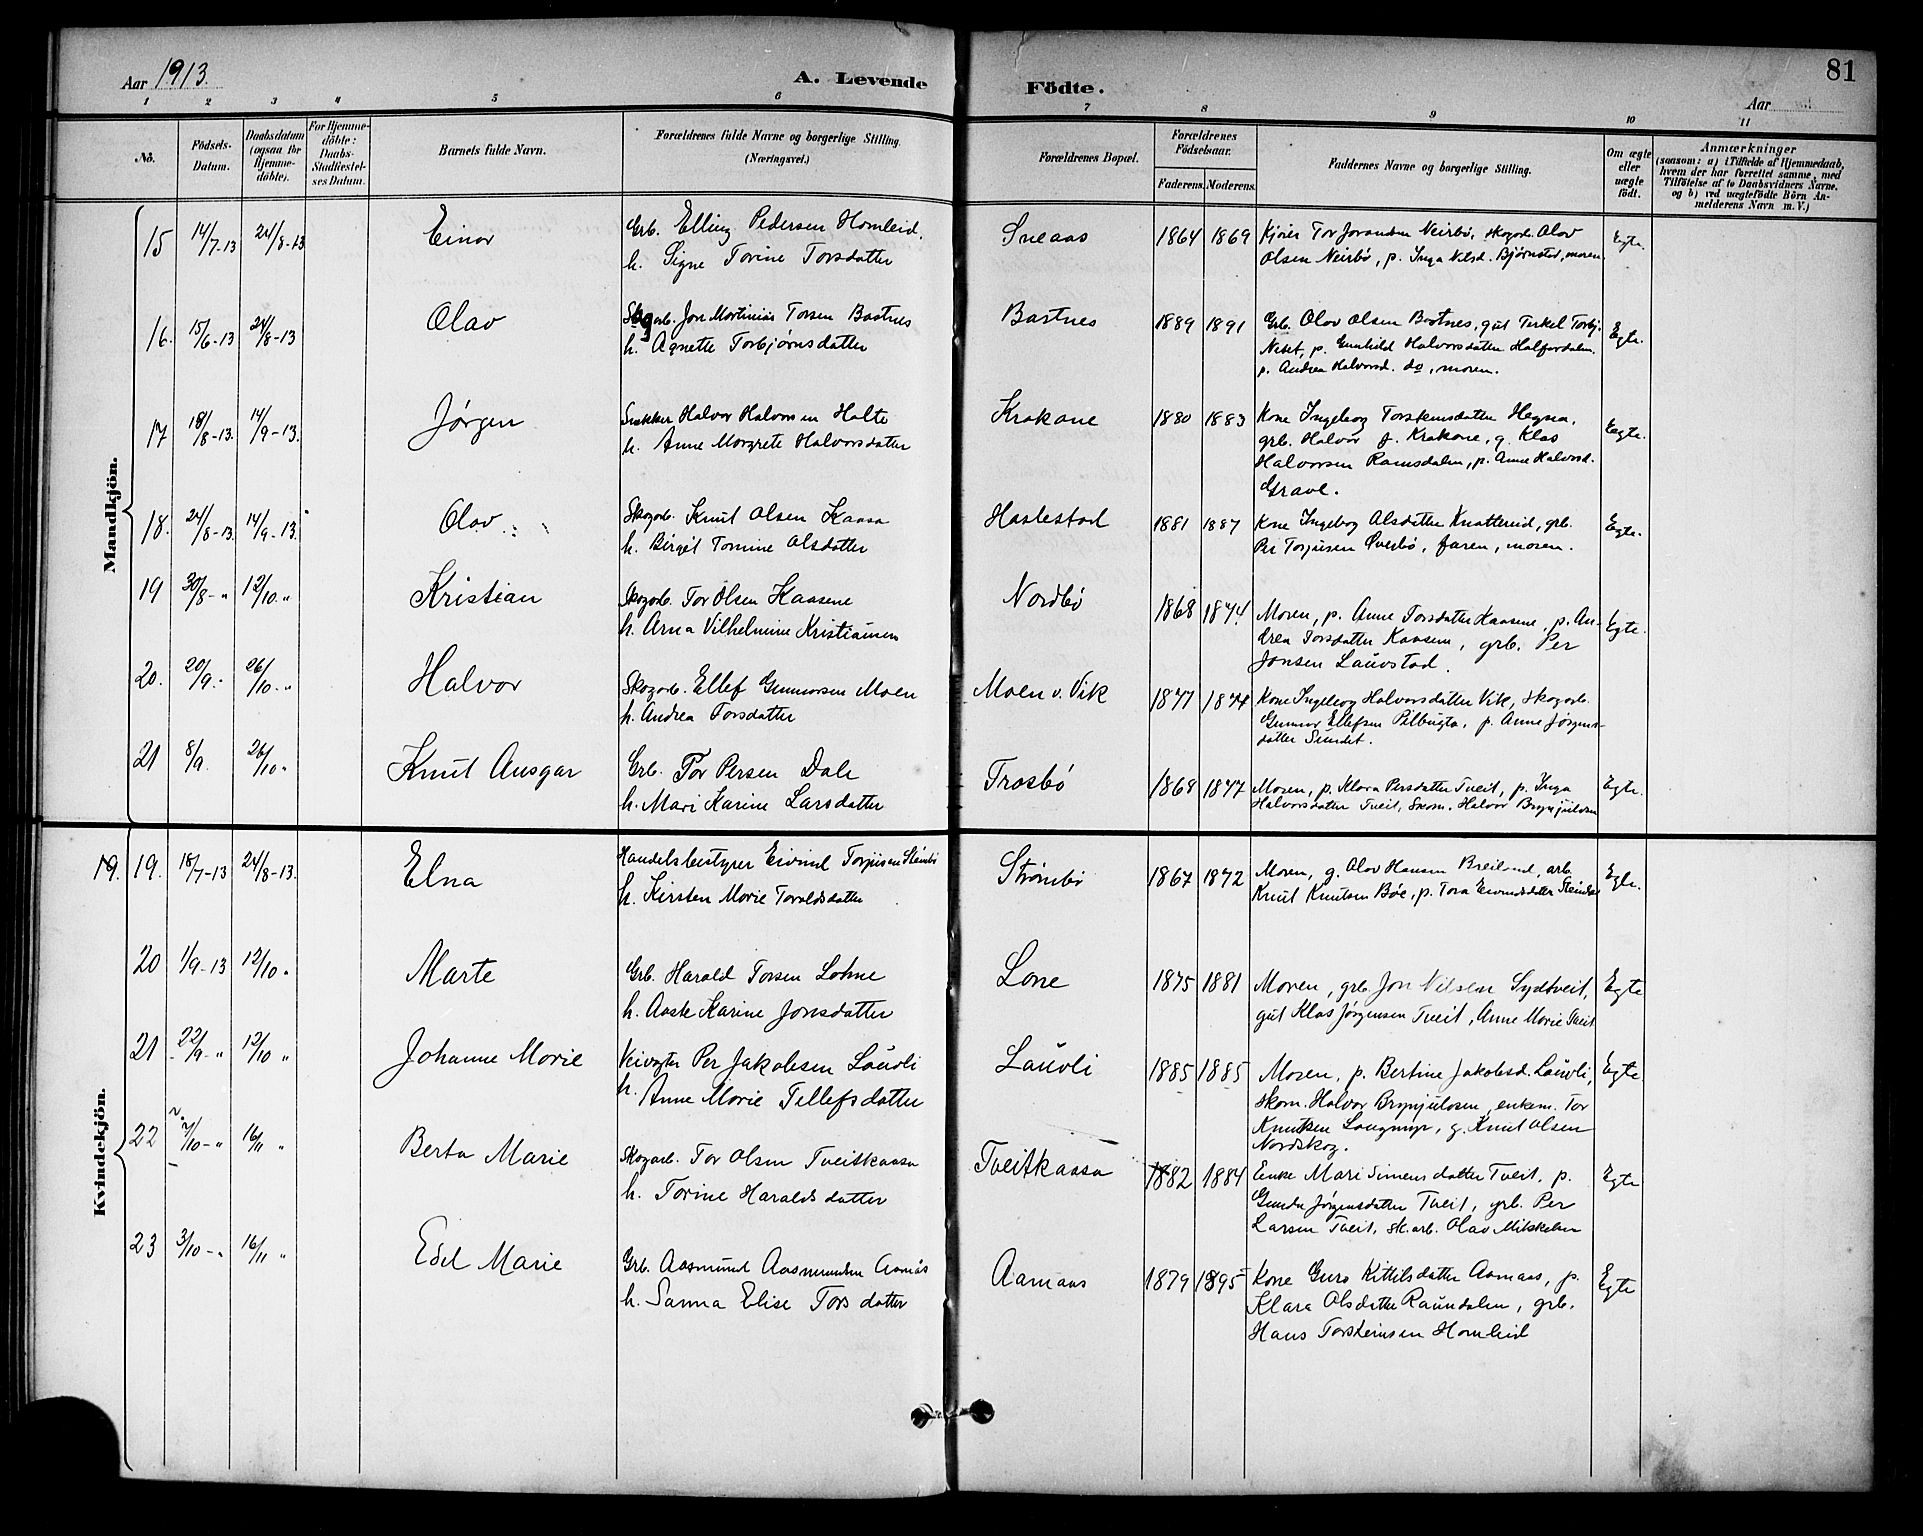 Aar 1913.
A. Levende
Födte.
81
Aar
1 2 3 4 5 6 7 8 9 10 11
No.
Födsels-Datum.
Daabsdatum (ogsaa for Hjemme-döbte).
For Hjemme-döbte: Daabs-Stadfæstel-ses Datum.
Barnets fulde Navn.
Forældrenes fulde Navne og borgerlige Stilling. (Næringsvei.)
Forældrenes Bopæl.
Forældrenes Födselsaar.
Faderens. Moderens.
Faddernes Navne og borgerlige Stilling.
Om ægte eller uægte født.
Anmærkninger
(saasom: a) i Tilfælde af Hjemmedaab,
hvem der har forrettet samme, med
Tilföielse af to Daabsvidners Navne,
og b) ved uægtefödte Börn An-
melderens Navn m. V.)
Mandkjön.
15 14/7-13 24/8-13 Einar
Grb. Elling Pedersen Homleid,
h. Signe Torine Torsdatter
Sneaas 1864 1869
Kjøier Tor Jorandsen Neirbø, skogarb. Olav
Olsen Neirbø, p. Inga Nilsd. Bjørnsted, moren
Egte.
16. 15/6-13 24/8-13 Olav
Skogarb. Jon Martinius Torsen Bastnes
h. Agnette Torbjørnsdatter
Bastnes 1889 1891
Grb. Olav Olsen Bastnes, gut Terkel Torbj.
Neset, p. Gunhild Halvorsdatter Halfardalen
p. Andrea Halvorsd. do, moren.
Egte.
17 18/8-13. 14/9-13. Jørgen
Snekker Halvor Halvorsen Holte
h. Anne Margrete Halvorsdatter
Krakane 1880 1883
Kone Ingeborg Torsteinsdatter Hegna,
grb. Halvor J. Krakone, g. Klas
Halvorsen Ramsdalen, p. Anne Halvorsd.
Grave.
Egte.
18. 24/8-13. 14/9-13. Olav
Skogarb. Knut Olsen Kaasa
h. Birgit Tomine Olsdatter
Haslestad 1881 1887
Kone Ingeborg Alsdatter Knattereid, grb.
Per Torjusen Øverbø, faren, moren.
Egte.
19 30/8-" 12/10." Kristian
Skogarb. Tor Olsen Kaasene
h. Arna Vilhelmine Kristiansen
Nordbø 1868 1874
Moren, p. Anne Torsdatter Kaasene, p. An-
drea Torsdatter Kaasene, grb. Per
Jonsen Lauvstad.
Egte.
20. 20/9.- 26/10-" Halvor
Skogarb. Ellef Gunnarsen Moen
h. Andrea Torsdatter
Moen v. Vik 1877 1874
Kone Ingeborg Halvorsdatter Vik, skogarb.
Gunnar Ellefsen Pilbugta, p. Anne Jørgens-
datter Sundet.
21 8/9. 26/10" Knut Ansgar
Grb. Tor Persen Dale
h. Mari Karine Larsdatter
Trosbø 1868 1877
Moren, p. Klara Persdatter Tveit, p. Inga
Halvorsdatter Tveit, Skom. Halvor Brynjulvsen
Egte.
Kvindekjön.
19. 19. 18/7-13 24/8-13. Elna
Handelsbestyrer Eivind Torjusen Steinbø
h. Kirsten Marie Toraldsdatter
Strømbø 1867 1872
Moren, g. Olav Hansen Breiland, arb.
Knut Knutsen Bøe, p. Tora Eivindsdatter Steinbø
Egte.
20 1/9-13 12/10. Marte
Grb. Harald Torsen Lohne
h. Aaste Karine Jonsdatter
Lone 1875 1881
Moren, grb. Jon Nilsen Sydtveit,
gut Klas Jørgensen Tveit, Anne Marie Tveit
Egte
21 22/9-" 12/10 " Johanne Marie
Veivogter Per Jakobsen Lauvli
h. Anne Marie Tellefsdatter
Lauvli 1885 1885
Moren, p. Bertine Jakobsd. Lauvli,
Skom. Halvor Brynjulvsen, enkem. Tor
Knutsen Langmyr, g. Knut Olsen
Nordskog.
Egte.
22 2/10-" 16/11 " Berta Marie
Skogarb. Tor Olsen Tveitkaasa
h. Torine Haraldsdatter
Tveitkaasa 1882 1884
Enke Mari Simensdatter Tveit, p.
Gunda Jørgensdatter Tveit, grb. Per
Larsen Tveit, sk.arb. Olav Mikkelsen
Egte
23 3/10-" 16/11 " Edel Marie
Grb. Aasmund Aasmundsen Aamås
h. Sanna Elise Torsdatter
Aamaas 1879 1895
Kone Guro Kittilsdatter Aamaas, p.
Klara Olsdatter Raundalen, grb.
Hans Torsteinsen Homleid
Egte